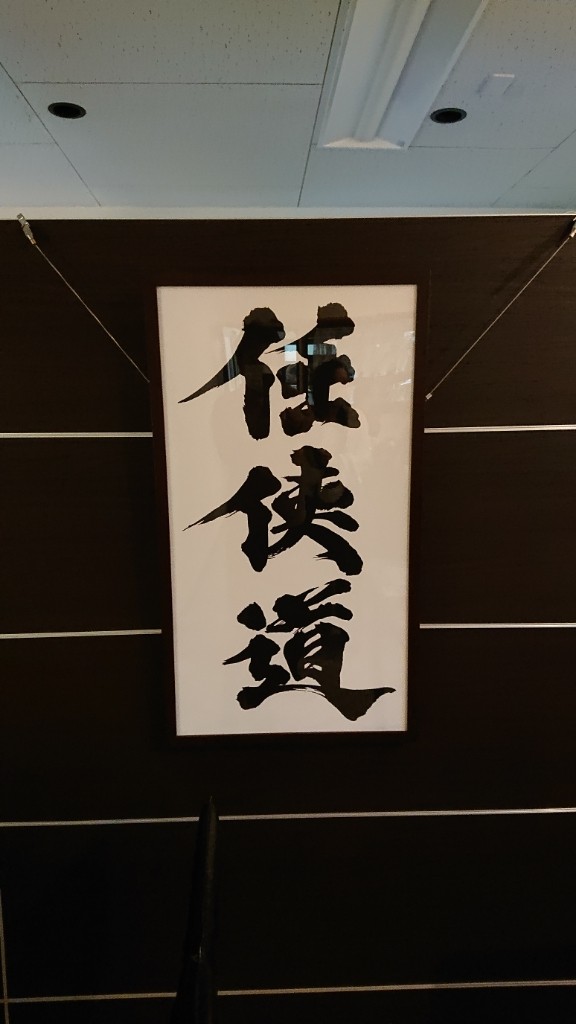 任侠道